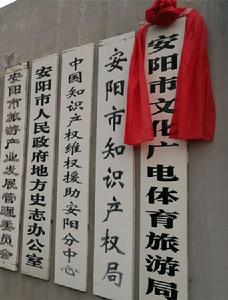 安阳市旅游产业发展管理委员会
安阳市人民政府地方史志办公室
中国知识产权维权援助安阳分中心
安阳市知识产权局
安阳市文化广电体育旅游局